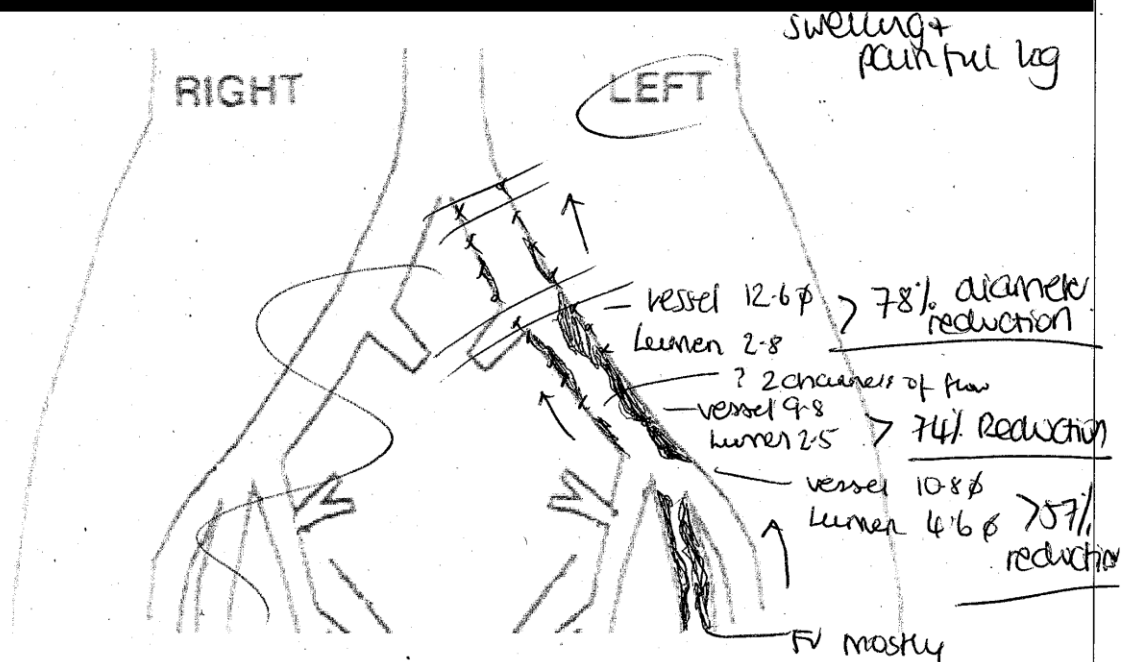 swelling +
painful leg
RIGHT
LEFT
vessel 12.6 ø > 78% diameter
reduction
Lumen 2.8
? 2 channels of flow
vessel 9.8
Lumen 2.5 > 74% Reduction
vessel 10.8 ø
Lumen 4.6 ø > 57%
reduction
FV mostly